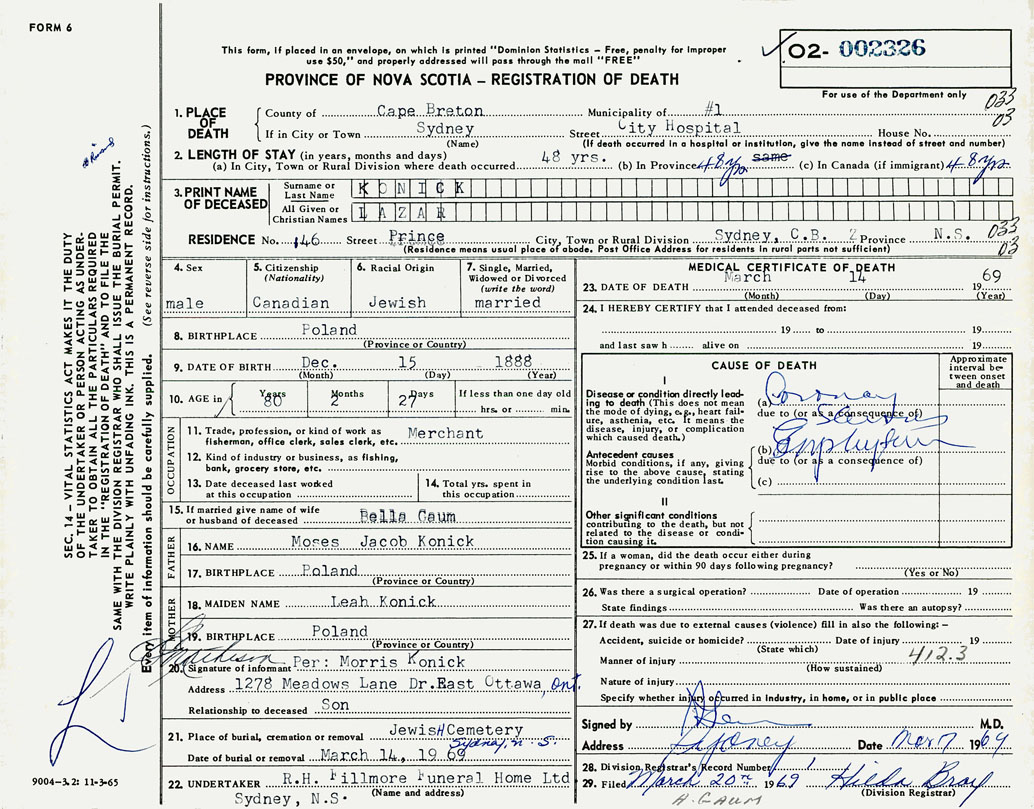 FORM 6
This form, if placed in an envelope, on which is printed "Dominion Statistics – Free, penalty for improper
use $50," and properly addressed will pass through the mail "FREE"
PROVINCE OF NOVA SCOTIA – REGISTRATION OF DEATH
02- 002326
For use of the Department only
033
03
1. PLACE OF DEATH
County of Cape Breton Municipality of #1
If in City or Town Sydney Street City Hospital House No.
(Name) (If death occurred in a hospital or institution, give the name instead of street and number)
2. LENGTH OF STAY (in years, months and days)
(a) In City, Town or Rural Division where death occurred 48 yrs. (b) In Province 48 yrs same (c) In Canada (if immigrant) 48 yrs.
3. PRINT NAME OF DECEASED
Surname or Last Name KONICK
All Given or Christian Names LAZAR
RESIDENCE No. 146 Street Prince City, Town or Rural Division Sydney, C.B. 2 Province N.S. 033
03
(Residence means usual place of abode. Post Office Address for residents in rural parts not sufficient)
4. Sex
male
5. Citizenship
(Nationality)
Canadian
6. Racial Origin
Jewish
7. Single, Married,
Widowed or Divorced
(write the word)
married
8. BIRTHPLACE Poland
(Province or Country)
9. DATE OF BIRTH Dec. 15 1888
(Month) (Day) (Year)
10. AGE in Years 80 Months 2 Days 27 If less than one day old
hrs. or min.
OCCUPATION
11. Trade, profession, or kind of work as Merchant
fisherman, office clerk, sales clerk, etc.
12. Kind of industry or business, as fishing,
bank, grocery store, etc.
13. Date deceased last worked
at this occupation
14. Total yrs. spent in
this occupation
15. If married give name of wife
or husband of deceased Bella Gaum
FATHER
16. NAME Moses Jacob Konick
17. BIRTHPLACE Poland
(Province or Country)
MOTHER
18. MAIDEN NAME Leah Konick
19. BIRTHPLACE Poland
(Province or Country)
20. Signature of informant Per: Morris Konick
Address 1278 Meadows Lane Dr. East Ottawa, Ont.
Relationship to deceased Son
21. Place of burial, cremation or removal Jewish Cemetery
Sydney, N. S.
Date of burial or removal March 14, 1969
22. UNDERTAKER R.H. Fillmore Funeral Home Ltd
(Name and address)
Sydney, N.S.
MEDICAL CERTIFICATE OF DEATH
23. DATE OF DEATH March 14 1969
(Month) (Day) (Year)
24. I HEREBY CERTIFY that I attended deceased from:
19 to 19
and last saw h alive on 19
CAUSE OF DEATH
Approximate interval between onset and death
I
Disease or condition directly leading to death (This does not mean
the mode of dying, e.g., heart failure, asthenia, etc. It means the
disease, injury, or complication
which caused death.)
(a) Coronary
due to (or as a consequence of)
Antecedent causes
Morbid conditions, if any, giving
rise to the above cause, stating
the underlying condition last.
(b) Emphysema
due to (or as a consequence of)
(c)
II
Other significant conditions
contributing to the death, but not
related to the disease or condition causing it.
25. If a woman, did the death occur either during
pregnancy or within 90 days following pregnancy?
(Yes or No)
26. Was there a surgical operation? Date of operation 19
State findings Was there an autopsy?
27. If death was due to external causes (violence) fill in also the following: –
Accident, suicide or homicide? Date of injury 19
(State which)
412.3
Manner of injury
(How sustained)
Nature of injury
Specify whether injury occurred in industry, in home, or in public place
Signed by M.D.
Address Sydney Date Mar 7 1969
28. Division Registrar's Record Number 1
29. Filed March 20th 1969 Hilda Bray
(Division Registrar)
A. GAUM
SEC. 14 – VITAL STATISTICS ACT MAKES IT THE DUTY
OF THE UNDERTAKER OR PERSON ACTING AS UNDER-
TAKER TO OBTAIN ALL THE PARTICULARS REQUIRED
IN THE "REGISTRATION OF DEATH" AND TO FILE THE
SAME WITH THE DIVISION REGISTRAR WHO SHALL ISSUE THE BURIAL PERMIT.
WRITE PLAINLY WITH UNFADING INK. THIS IS A PERMANENT RECORD.
Every item of information should be carefully supplied. (See reverse side for instructions.)
9004-3.2: 11-3-65